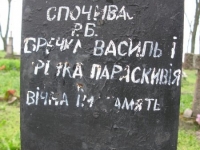 СПОЧИВА
Р.Б.
ГРЕЧКА ВАСИЛЬ І
ГРЕЧКА ПАРАСКИВІЯ
ВІЧНА ЇМ ПАМЯТЬ